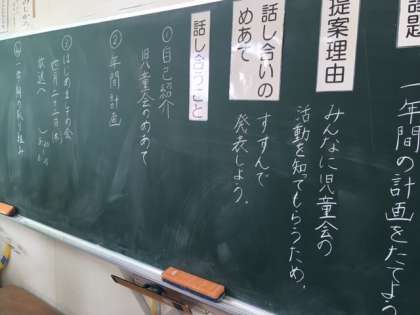 議題
一年間の計画をたてよう
提案理由
みんなに児童会の
活動を知てもらうため。
話し合いの
めあて
すすんで
発表しよう。
話し合うこと
①自己紹介
児童会のめあて
②年間計画
③はじめましての会
④一年間の取り組み